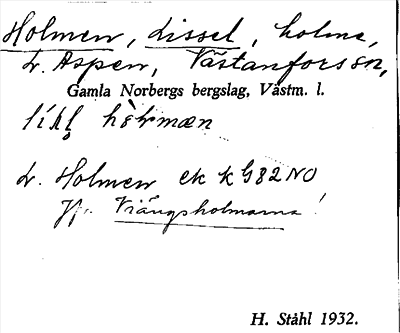 Holmen, Lissel, holme,
L. Aspen, Västanfors sn,
Gamla Norbergs bergslag, Västm. l.
L. Holmen ek k G82 NO
Jfr Triängsholmarna!
H. Ståhl 1932.